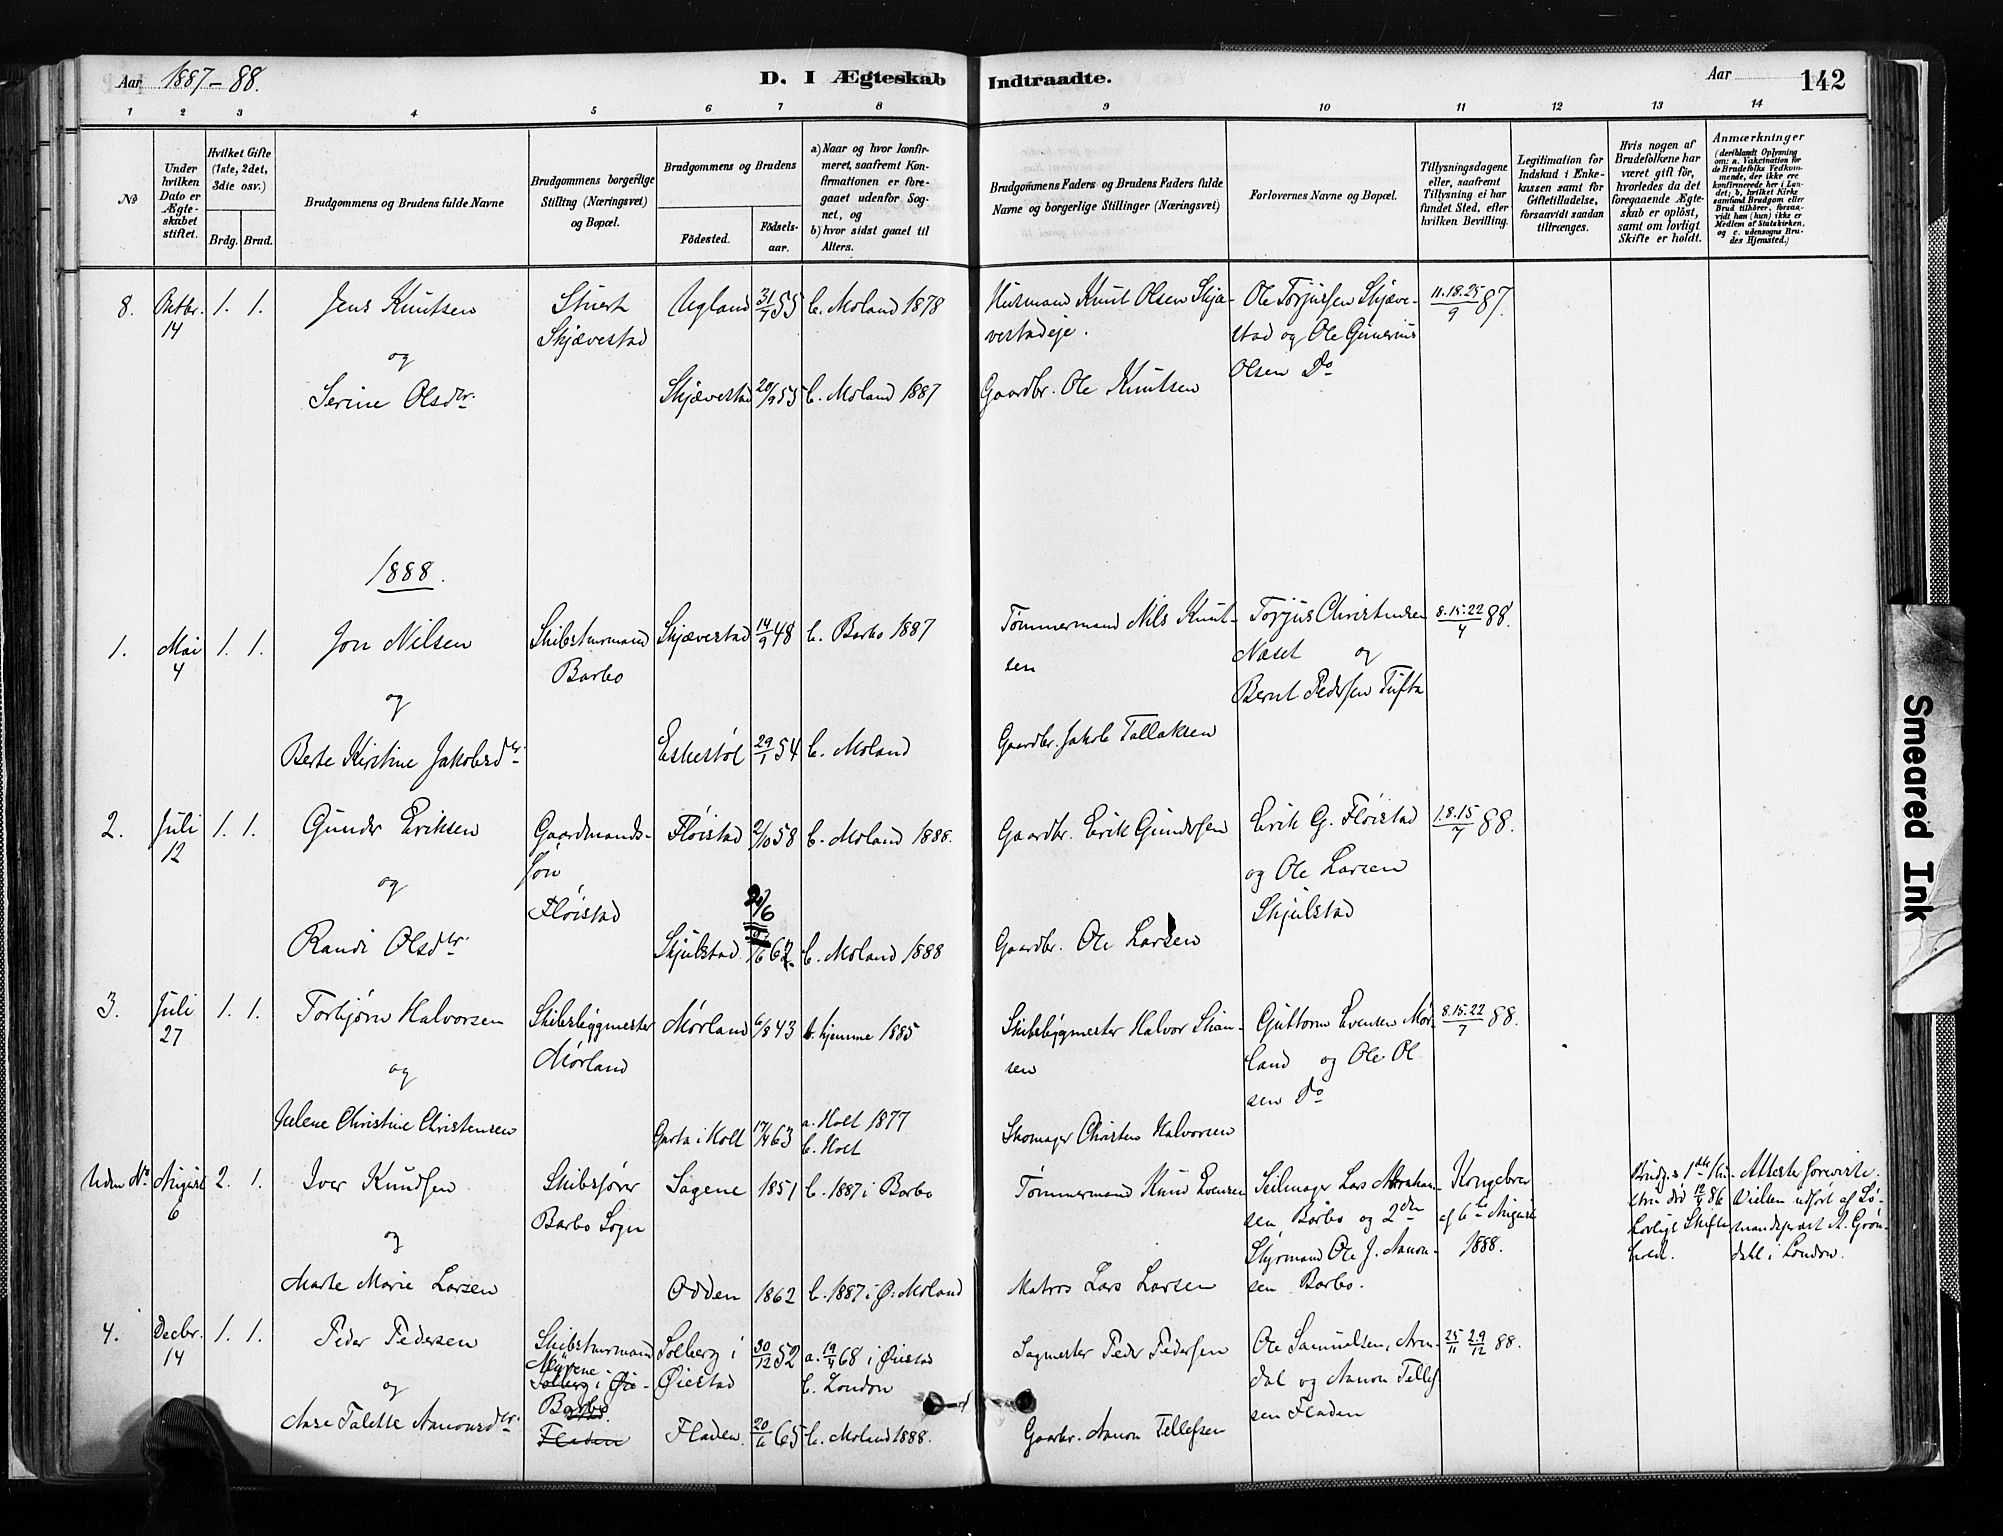 Aar 1887-88.
D. I Ægteskab Indtraadte.
Aar
142
1 2 3 4 5 6 7 8 9 10 11 12 13 14
No
Under hvilken Dato er Ægteskabet stiftet.
Hvilket Gifte (1ste, 2det, 3die osv.)
Brdg. Brud.
Brudgommens og Brudens fulde Navne
Brudgommens borgerlige Stilling (Næringsvei) og Bopæl.
Brudgommens og Brudens
Fødested. Fødselsaar.
a) Naar og hvor konfirmeret, saafremt Konfirmationen er foregaaet udenfor Sognet, og
b) hvor sidst gaaet til Alters.
Brudgommens Faders og Brudens Faders fulde Navne og borgerlige Stillinger (Næringsvei)
Forlovernes Navne og Bopæl.
Tillysningsdagene eller, saafremt Tillysning ei har fundet Sted, efter hvilken Bevilling.
Legitimation for Indskud i Enkekassen samt for Giftetilladelse, forsaavidt saadan tiltrænges.
Hvis nogen af Brudefolkene har været gift før, hvorledes da det foregaaende Ægteskab er opløst, samt om lovligt Skifte er holdt.
Anmærkninger
(deriblandt Oplysning om: a. Vakcination for de Brudefolks Vedkommende, der ikke ere konfirmerede her i Landet; b, hvilket Kirkesamfund Brudgom eller Brud tilhører, forsaavidt han (hun) ikke er Medlem af Statskirken, og c. udensogns Brudes Hjemsted.)
8. Oktbr. 14 1. 1. Jens Knutsen
Stuert Skjævestad
Ugland 31/7 55 b. Moland 1878
Husmand Knut Olsen Skjævestadeje.
Ole Torjussen Skjævestad og Ole Gunerius Olsen Do
11.18.25/9 87.
og
Serine Olsdtr.
Skjævestad 20/9 55 b. Moland 1887
Gaardbr. Ole Knutsen
1888.
1. Mai 4 1. 1. Jon Nilsen
Skibsturmand Barbo
Skjævestad 14/9 48 b. Barbo 1887
Tømmermand Nils Knutsen
Torjus Christensen Næset og Bernt Pedersen Tufta
8.15.22/4 88.
og
Berte Kirstine Jakobsdtr.
Eskestøl 29/1 54 b. Moland
Gaardbr. Jakob Tallaksen
2. Juli 12 1. 1. Gunder Eriksen
Gaardmands-søn Fløistad
Fløistad 2/10 58 b. Moland 1888.
Gaardbr. Erik Gundersen
Erik G. Fløistad og Ole Larsen Skjulstad
1.8.15/7 88.
og
Randi Olsdtr.
Skjulstad 62 b. Moland 1888
Gaardbr. Ole Larsen
3. Juli 27 1. 1. Torbjørn Halvorsen
Skibsbygmester Mørland
Mørland 6/8 43 b. hjemme 1885
Skibsbygmester Halvor
Guttorm Evensen Mørland og Ole Olsen Do
8.15.22/7 88.
og
Julene Christine Christensen
Garta i Holt 17/4 63 a. Holt 1877 b. Holt
Skomager Christen Halvorsen
Uden No August 6 2. 1. Iver Knudsen
Skibsfører Barbo Sogn
Sagene 1851 b. 1887 i Barbo
Tømmermand Knud Evensen
Seilmager Lars Abrahamsen Barbo og 2den Styrmand Ole J. Aanonsen Barbo.
Kongebrev af 6te August 1888.
Brudg.s 1ste Hustru død 12/4 86 Lovligt Skifte holdt.
Atteste forevirte. Vielsen udført af Sømandspræst A. Grøndahl i London.
og
Marte Marie Larsen
Odden 1862 b. 1887 i Ø. Moland
Matros Lars Larsen
4. Decbr. 14 1. 1. Peder Pedersen
Skibsturmand
Solberg i Øie-
Barbo
Fladen
Solberg i Øiestad 30/12 52 a. 19/4 68 i Øiestad b. London
Sagmester Peder Pedersen
Ole Samuelsen, Arendal og Aanon Tellefsen Fladen
25/11 2.9/12 88.
og
Aase Talette Aanonsdtr.
Fladen 65 b. Moland 1888.
Gaarbr. Aanon Tellefsen
Smeared Ink